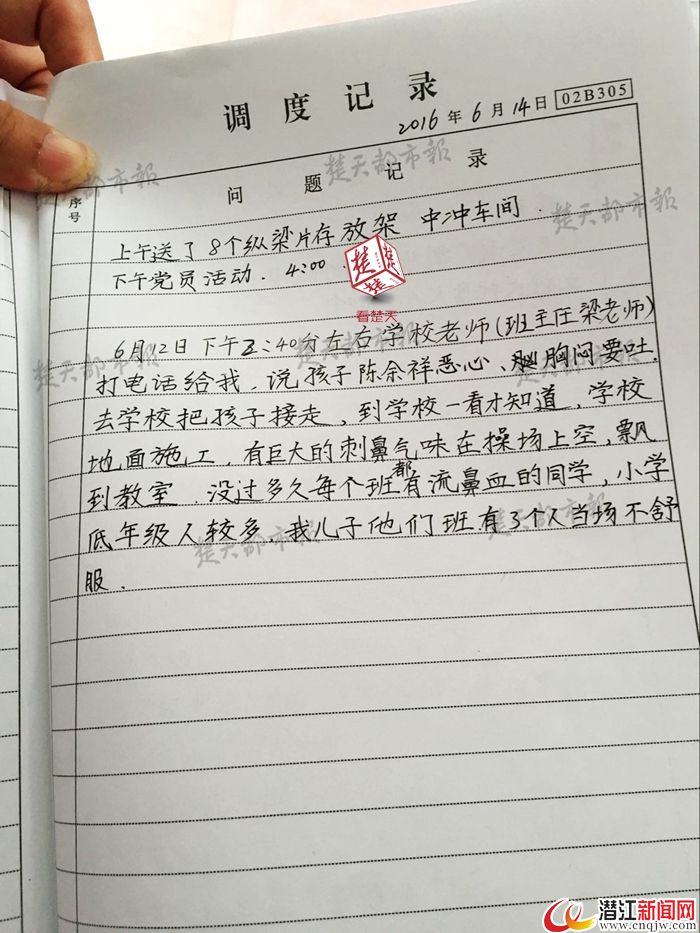 调度记录
2016年6月14日 02B305
序号 问题记录
楚天都市报 楚天都市报 楚天都市报
上午送了8个纵梁片存放架 中冲车间.
下午党员活动. 4:00.
楚楚楚
看楚天
6月12日下午2:40分左右学校老师(班主任梁老师)
楚天都市报
打电话给我,说孩子陈余祥恶心、胸闷要吐.
去学校把孩子接走,到学校一看才知道,学校
地面施工,有巨大的刺鼻气味在操场上空,飘
到教室.没过多久每个班都有流鼻血的同学,小学
低年级人较多.我儿子他们班有3个人当场不舒
楚天都市报 楚天都市报
服.
潜江新闻网
www.cnqjw.com